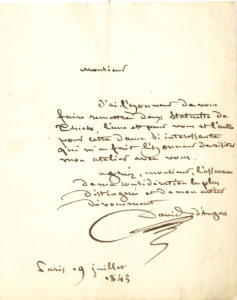 Monsieur
J'ai l'honneur de vous
faire remettre deux Statuettes de
l'une est pour vous et l'autre
pour cette dame si interessante
qui m'a fait l'honneur de visiter
mon atelier avec vous.
agréez, monsieur, l'assurance
de ma considération la plus
distinguée et de mon entier
dévouement
David d'Angers
Paris 9 juillet
1843